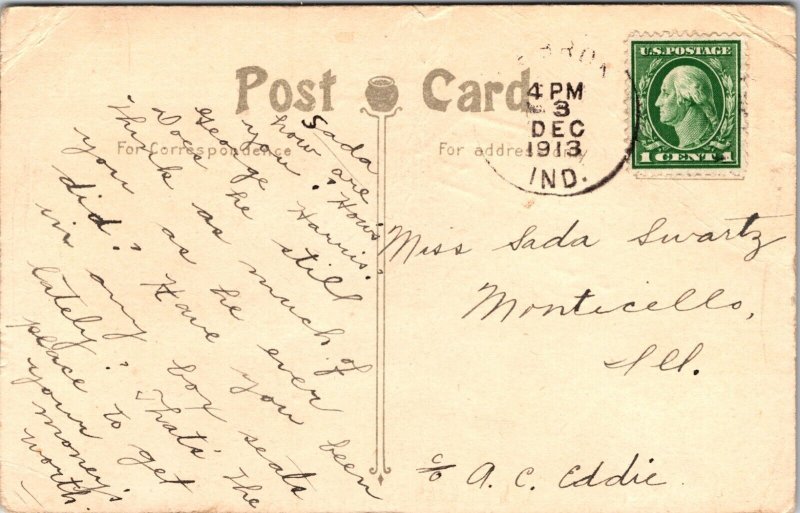 Post Card
For Correspondence
For address only
4 PM
3
DEC
1913
IND.
U.S. POSTAGE
1 CENT 1
Sada
how are
you? How's
George Harris.
Does he still
think as much of
you as he ever
did? Have you been
in any box seats
lately? That's the
place to get
your money's
worth.
Miss Sada Swartz
Monticello,
Ill.
c/o A. C. Eddie